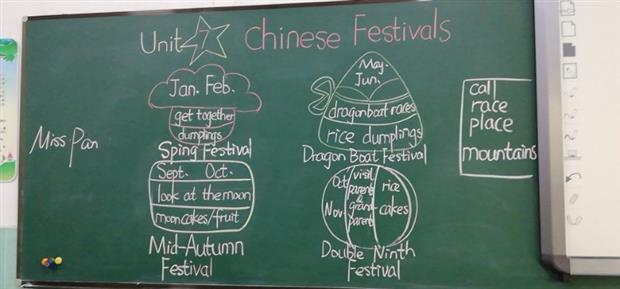 Unit 7 Chinese Festivals
Miss Pan
Jan. Feb.
get together
dumplings
Sping Festival
May.
Jun.
dragon boat races
rice dumplings
Dragon Boat Festival
Sept. Oct.
look at the moon
mooncakes/fruit
Mid-Autumn
Festival
Oct
Nov.
visit
parents
&
grand-
parents
rice
cakes
Double Ninth
Festival
call
race
place
mountains